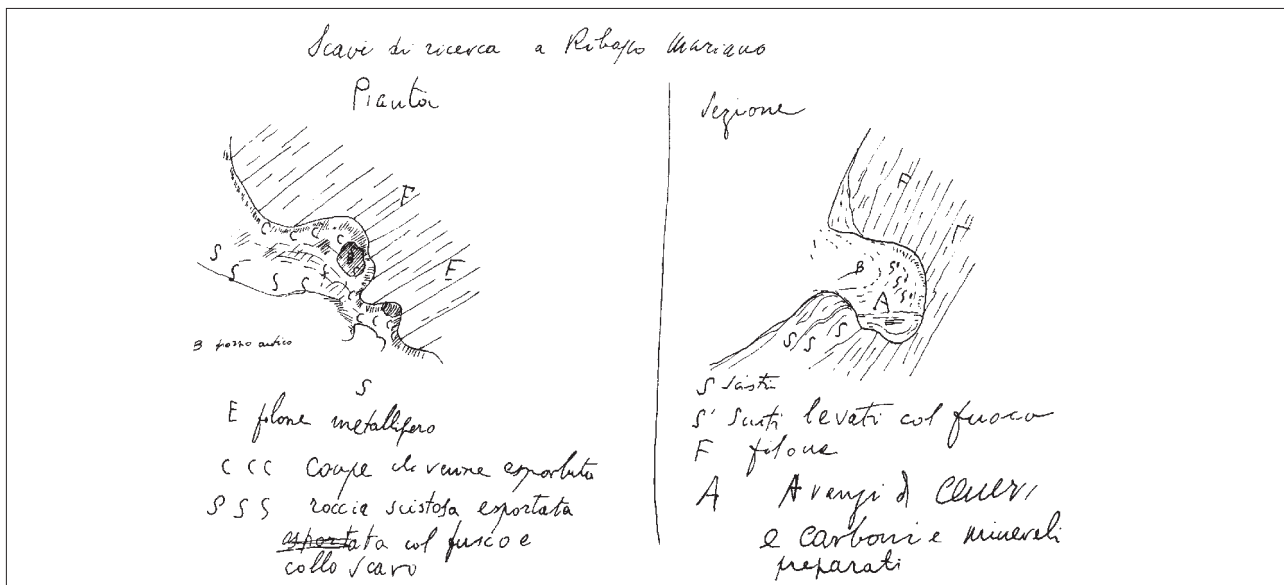 Scavi di ricerca a Mariano
Pianta
E
E
C C C C
S S S S S
B pozzo antico
S
E filone metallifero
C C C che venne esportata
S S S roccia scistosa esportata
esportata col fuoco e
collo scavo
Sezione
F
F
B S' S' S'
A
S S S
S scisti
S' scisti levati col fuoco
F filone
A Avanzi di ceneri
e carboni e minerali
preparati